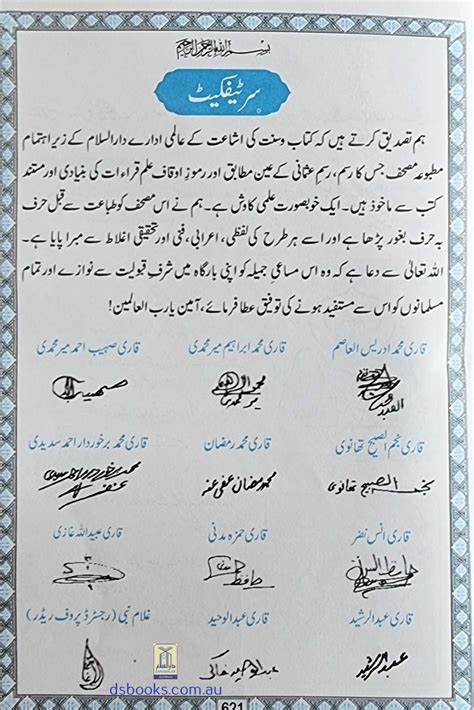 بسم اللہ الرحمن الرحیم
سرٹیفکیٹ
ہم تصدیق کرتے ہیں کہ کتاب وسنت کی اشاعت کے عالمی ادارے دارالسلام کے زیرِ اہتمام
مطبوعہ مصحف جس کا رسم، رسمِ عثمانی کے عین مطابق اور رموزِ اوقاف علم قراءات کی بنیادی اور مستند
کتب سے ماخوذ ہیں۔ ایک خوبصورت علمی کاوش ہے۔ ہم نے اس مصحف کو طباعت سے قبل حرف
بہ حرف بغور پڑھا ہے اور اسے ہر طرح کی لفظی، اعرابی، فنی اور تحقیقی اغلاط سے مبرا پایا ہے۔
اللہ تعالیٰ سے دعا ہے کہ وہ اس مساعیٔ جمیلہ کو اپنی بارگاہ میں شرفِ قبولیت سے نوازے اور تمام
مسلمانوں کو اس سے مستفید ہونے کی توفیق عطا فرمائے، آمین یا رب العالمین!
قاری محمد ادریس العاصم قاری محمد ابراہیم میر محمدی قاری صہیب احمد میر محمدی
صہیب
قاری نجم الصبیح تھانوی قاری محمد رمضان قاری محمد برخوردار احمد سدیدی
نجم الصبیح تھانوی محمد رمضان عفی عنہ
قاری انس نضر قاری حمزہ مدنی قاری عبید اللہ غازی
قاری عبدالرشید قاری عبدالوحید غلام نبی (رجسٹرڈ پروف ریڈر)
عبدالرشید
dsbooks.com.au
621